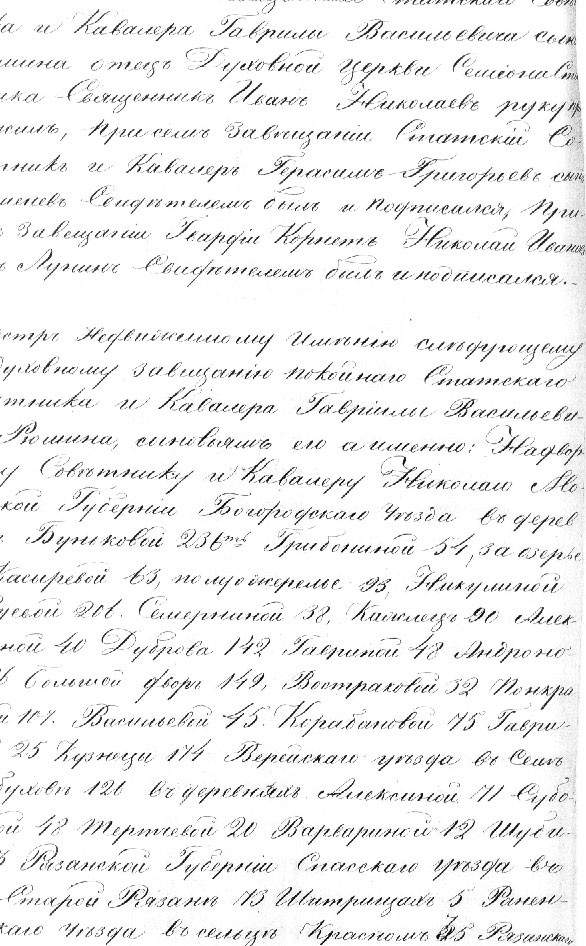 Статский Сов
ра и Кавалера Гаврили Васильевича сын
юшина отец Духовной Церкви Семиона Ст
ника Священникъ Иванъ Николаевъ руку при
ложилъ, При семъ завещании Статскій Со-
ветникъ и Кавалеръ Герасимъ Григорьевъ сынъ
меневъ Свидѣтелемъ былъ и подписался, При
ъ Завещаніи Гвардіи Корнетъ Николай Иванов
ъ Лунинъ Свидѣтелемъ былъ и подписался.-
естръ Недвижимому Имѣнію слѣдующему
духовному завещанію покойнаго Статскаго
етника и Кавалера Гавріилы Васильеви-
Рюшина, сыновьямъ его а именно: Надвор
му Совѣтнику и Кавалеру Николаю Мо-
ской Губерніи Богородскаго уѣзда въ дерев
Буньковой 236ть Грибониной 54, за озерье
Касиревой 63, полуожерелье 93, Никулиной
усевой 206. Семерниной 38, Кажлецъ 90 Алек
ной 40 Дуброва 142 Гавриной 48 Андроно
6 Большой дворъ 149, Востраковой 32 Понкра
й 107. Васильевой 45. Корабановой 75 Гаври-
25 Кузнецы 174 Верейскаго уѣзда въ Селѣ
буховѣ 126 въ деревняхъ Алексиной 71 Субо-
ой 48 Тертчевой 20 Варвариной 12 Шуби-
Рязанской Губерніи Спасскаго уѣзда въ
Старой Рязани 73 Шатрищахъ 5 Ранен-
скаго уѣзда въ сельцѣ Красномъ 25 Рязанскаго